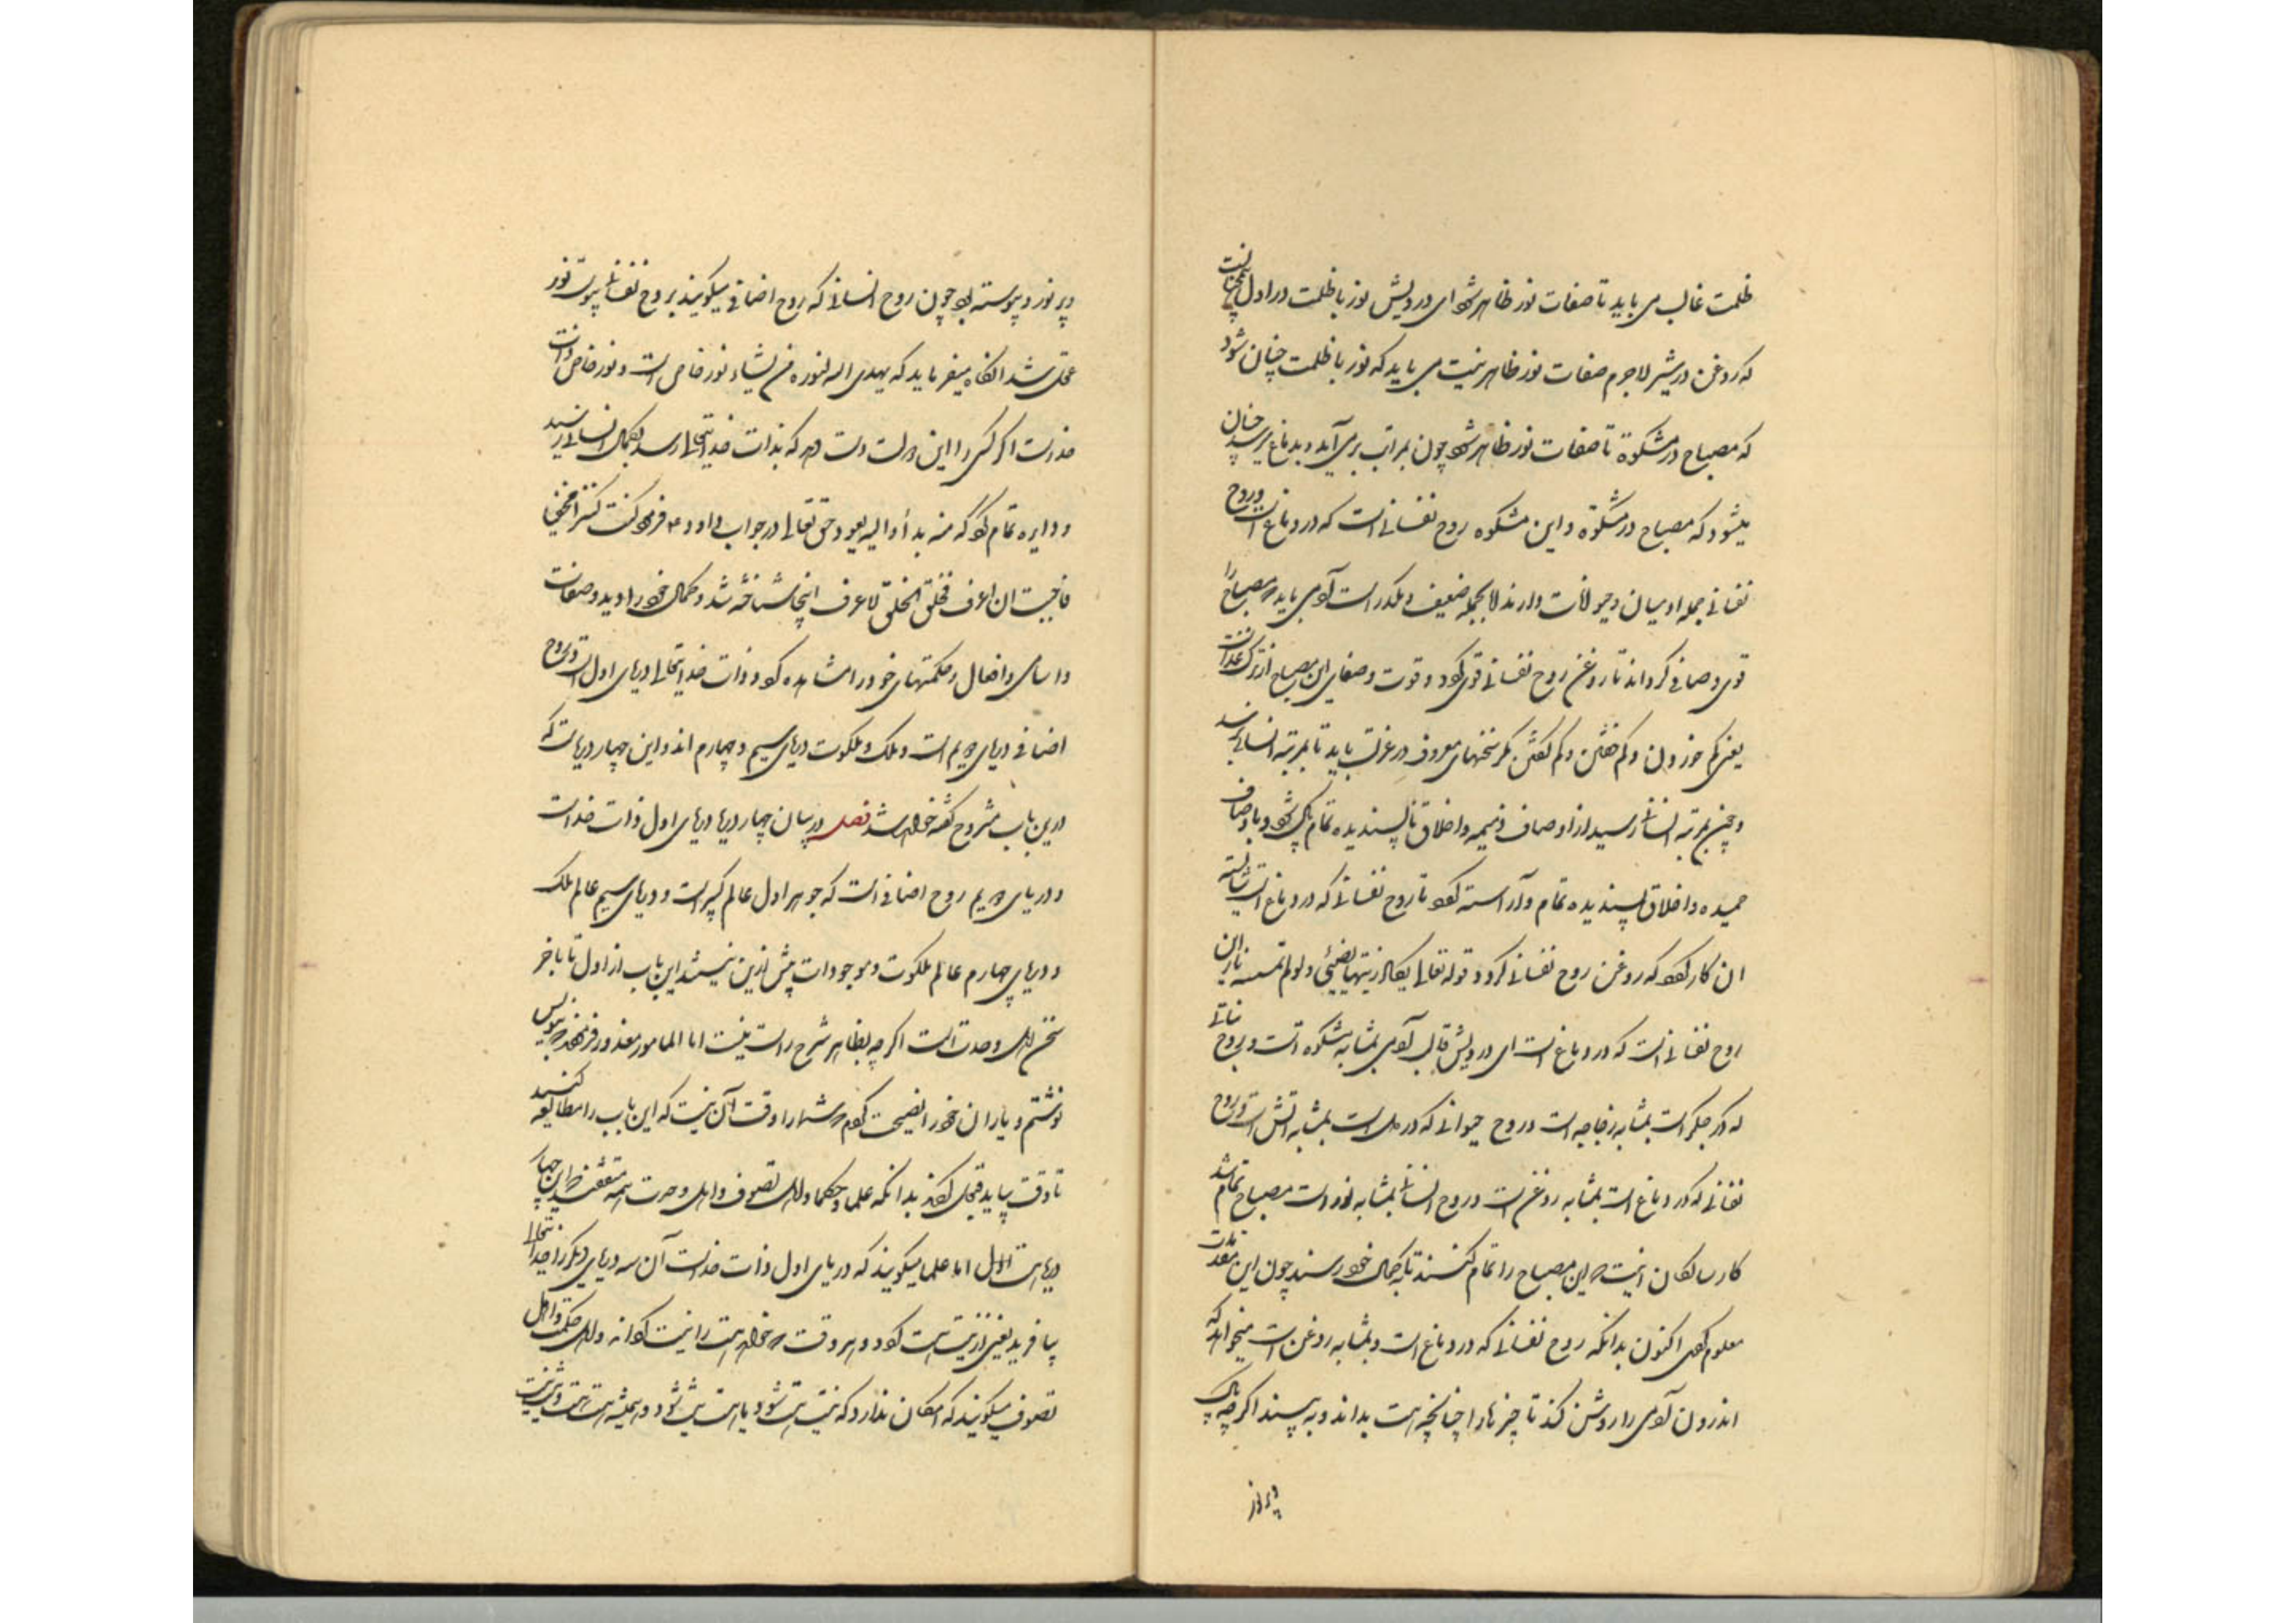 ظلمت غالب می باید تا صفات نور ظاهر شود ای درویش نور با ظلمت در اول همچنانست
که روغن در شیر لاجرم صفات نور ظاهر نیست می باید که نور با ظلمت چنان شود
که مصباح در مشکوة تا صفات نور ظاهر شود چون بمراتب برمی آید و بدماغ میرسد چنان
میشود که مصباح در مشکوة و این مشکوه روح نفسانی است که در دماغ است و روح
نفسانی جمله ادمیان و حیوانات دارند لا بجمله ضعیف و مکدر است آدمی باید که مصباح را
قوی و صافی گرداند تا روغن روح نفسانی قوی گردد و قوت و صفای این مصباح از ترک غذاست
یعنی کم خوردن و کم خفتن و کم گفتن مگر سخنهای معروف در عزلت باید تا بمرتبه انسانی رسد
و چون بمرتبه انسانی رسید از اوصاف ذمیمه و اخلاق ناپسندیده تمام پاک شود و باوصاف
حمیده و اخلاق پسندیده تمام و آراسته گردد تا روح نفسانی که در دماغ است شایسته
ان کار گردد که روغن روح نفسانی گردد قوله تعالی یکاد زیتها یضیئ و لو لم تمسسه نار این
روح نفسانی است که در دماغ است ای درویش قالب آدمی بمثابه مشکوه است و روح نباتی
که در جگر است بمثابه زجاجه است و روح حیوانی که در دل است بمثابه آتش است و روح
نفسانی که در دماغ است بمثابه روغن است و روح انسانی بمثابه نور است مصباح تمام شد
کار سالکان اینست که این مصباح را تمام کنند تا بکمال خود رسند چون این مقدمات
معلوم کردی اکنون بدانکه روح نفسانی که در دماغ است و بمثابه روغن است میخواهد که
اندرون آدمی را روشن کند تا چیزها را چنانچه هست بداند و به بیند اگر چه پاک
و پر نور
و پر نور و پیوسته بود چون روح انسانی که روح اضافی میگویند بروح نفسانی پیوست نور
علی نور شد انگاه میفرماید که یهدی الله لنوره من یشاء نور خاص است و نور خاص ذات
خداست اگر کسی را این دولت دست دهد که بذات خدایتعالی رسد بکمال انسانی رسید
و دایره تمام کرد که منه بدأ و الیه یعود حق تعالی در جواب داود ع فرمود کنت کنزا مخفیا
فاحببت ان اعرف فخلقت الخلق لاعرف اینجا شناخته شد و کمال خود را دید و صفات
و اسامی و افعال و حکمتهای خود را مشاهده کرد و ذات خدایتعالی دریای اول است و روح
اضافی دریای دویم است و ملک و ملکوت دریای سیم و چهارم اند و این چهار دریاست که
درین باب مشروح گفته خواهد شد فصل در بیان چهار دریا دریای اول ذات خداست
و دریای دویم روح اضافی است که جوهر اول عالم کبیر است و دریای سیم عالم ملک
و دریای چهارم عالم ملکوت و موجودات بیش ازین نیستند این باب از اول تا باخر
سخن اهل وحدت است اگر چه بظاهر شرح راست نیست اما المامور معذور فرمودند که بنویس
نوشتم و یاران خود را نصیحت کردم که شما را وقت آن نیست که این باب را مطالعه کنید
تا وقت بیاید تعجیل نکنند بدانکه علما و حکما و اهل تصوف و اهل وحدت همه متفقند که این چهار
دریا هست اما علما میگویند که دریای اول ذات خداست آن سه دریای دیگر را خدایتعالی
بیافرید یعنی از نیست هست کرد و هر وقت که خواهد هست را نیست گرداند و اهل حکمت و اهل
تصوف میگویند که امکان ندارد که نیست هست شود یا هست نیست شود و همیشه هست هست و نیست نیست